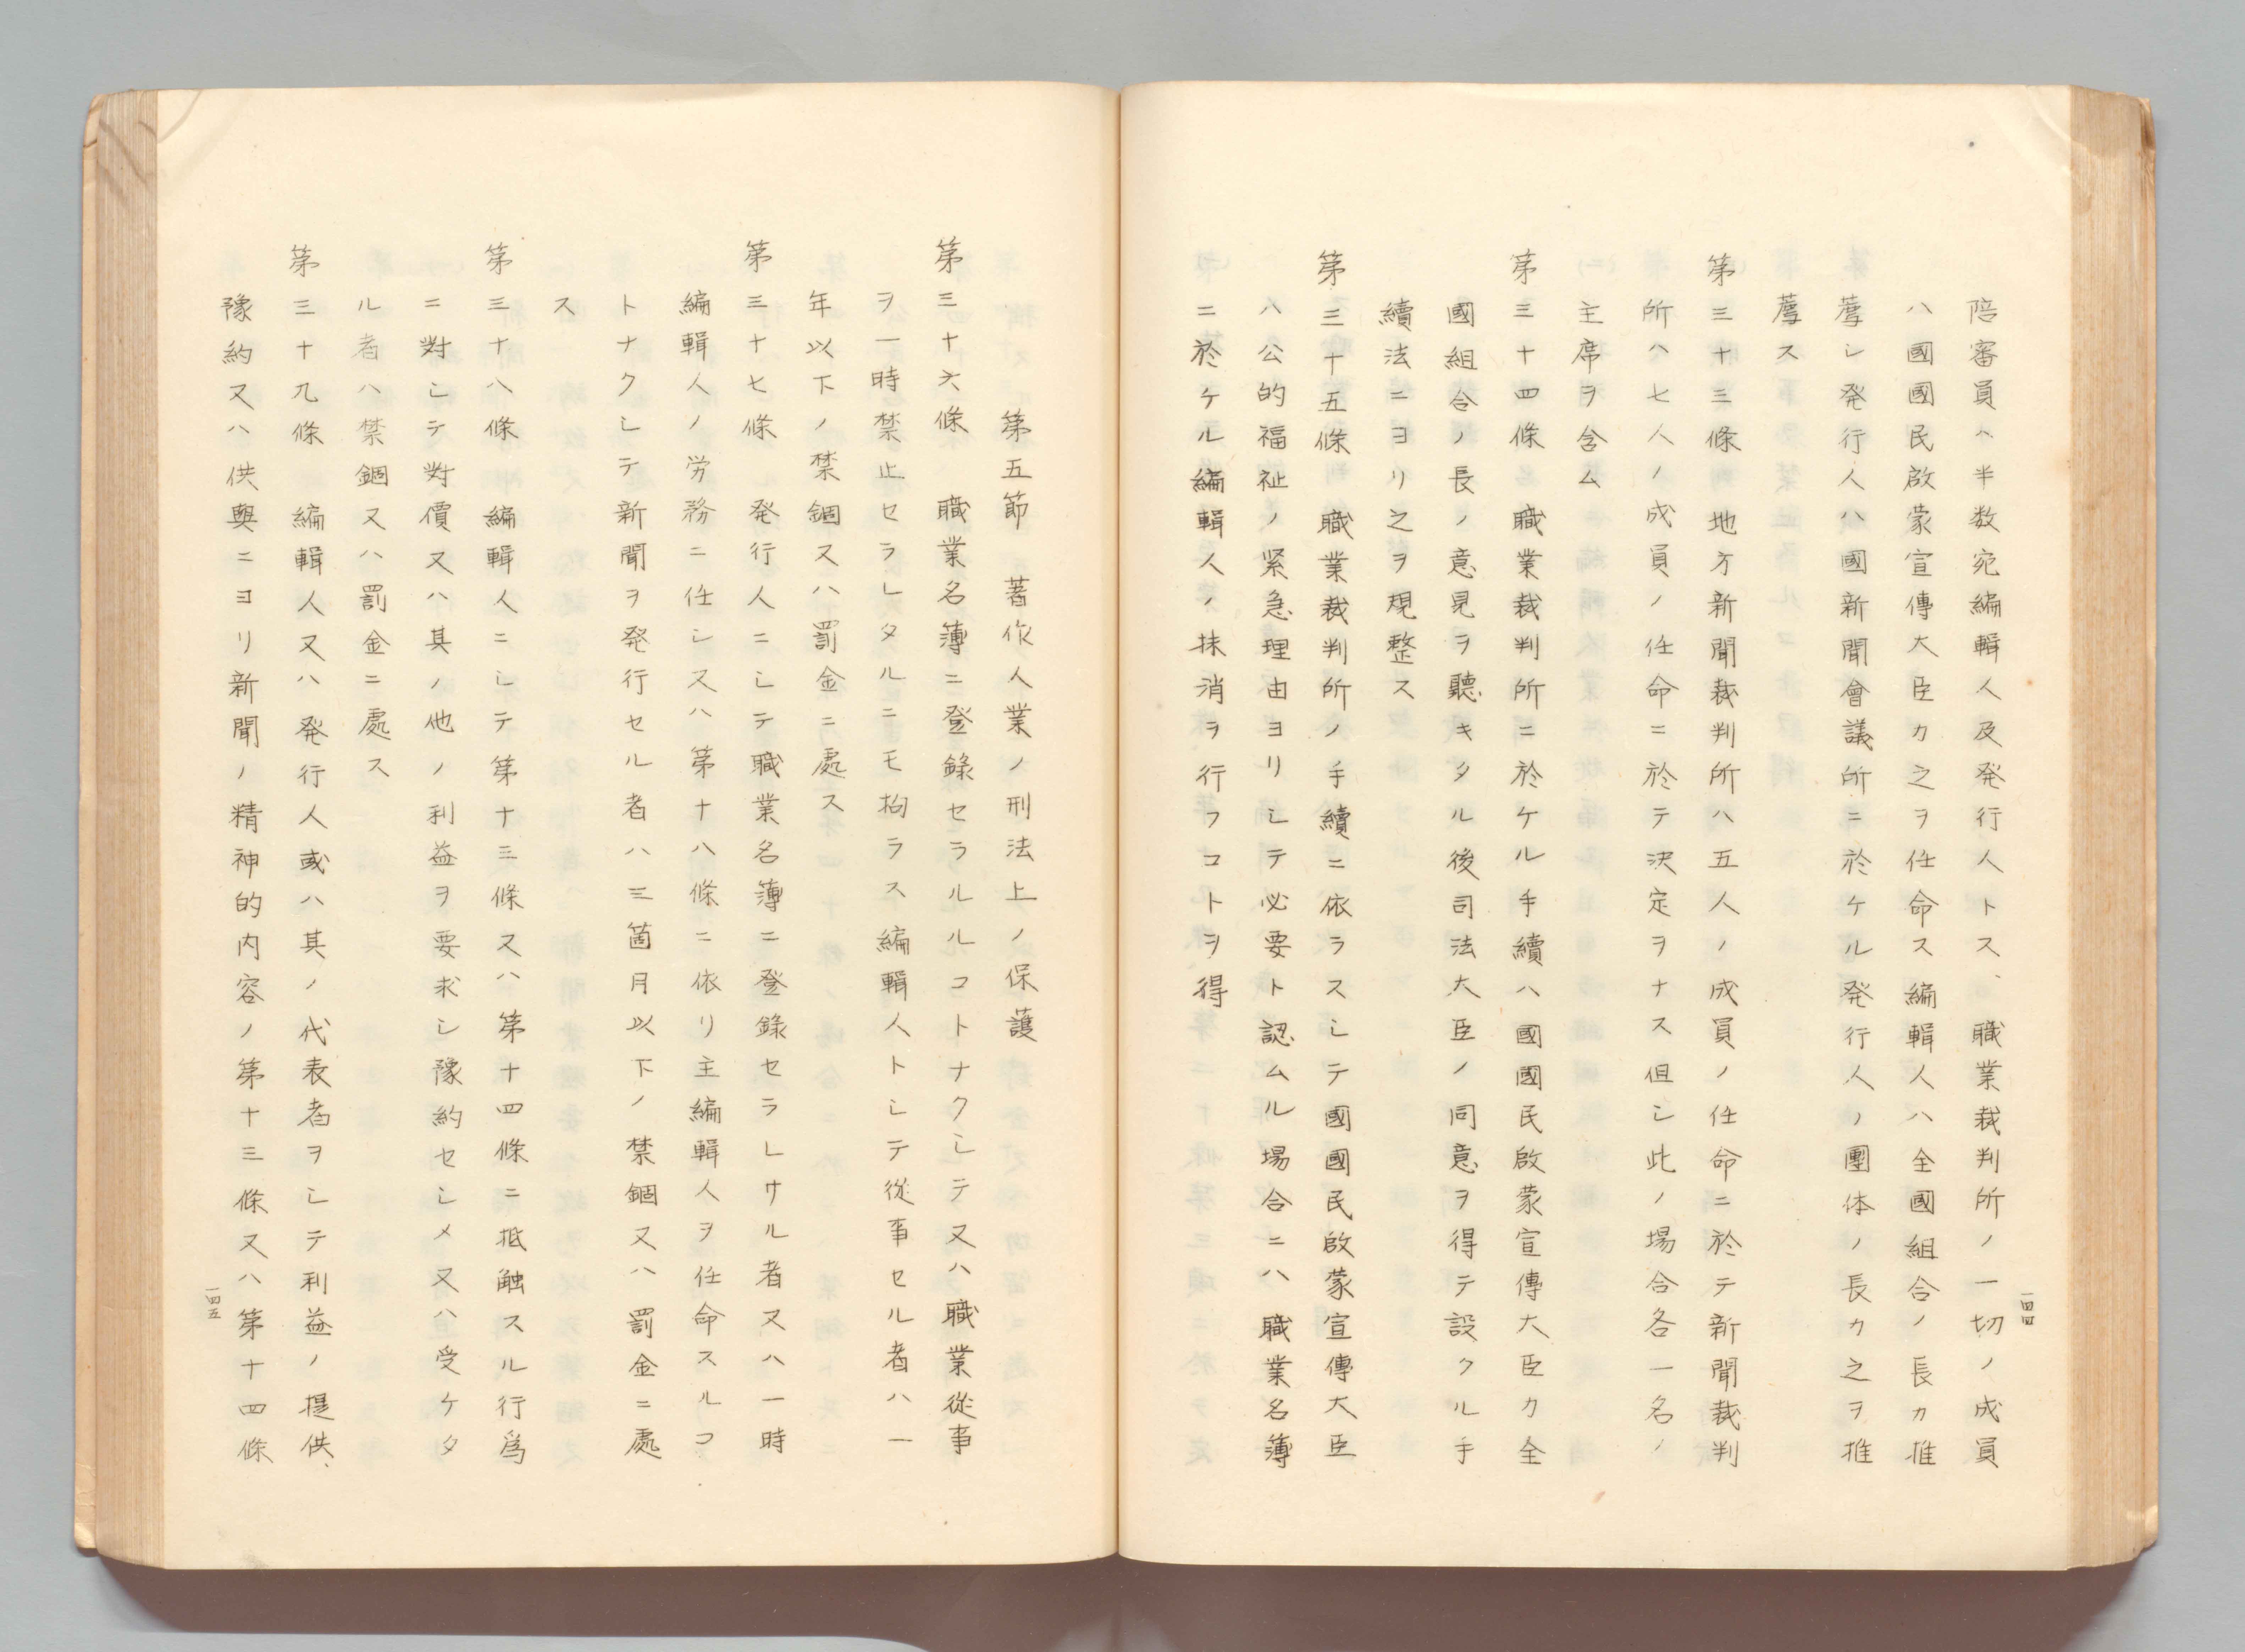 陪審員ハ半数宛編輯人及発行人トス、職業裁判所ノ一切ノ成員
ハ國國民啟蒙宣傳大臣カ之ヲ任命ス編輯人ハ全國組合ノ長カ推
薦シ発行人ハ國新聞會議所ニ於ケル発行人ノ團体ノ長カ之ヲ推
薦ス
第三十三條 地方新聞裁判所ハ五人ノ成員ノ任命ニ於テ新聞裁判
所ハ七人ノ成員ノ任命ニ於テ決定ヲナス但シ此ノ場合各一名ノ
主席ヲ含ム
第三十四條 職業裁判所ニ於ケル手續ハ國國民啟蒙宣傳大臣カ全
國組合ノ長ノ意見ヲ聽キタル後司法大臣ノ同意ヲ得テ設クル手
續法ニヨリ之ヲ規整ス
第三十五條 職業裁判所ノ手續ニ依ラスシテ國國民啟蒙宣傳大臣
ハ公的福祉ノ緊急理由ヨリシテ必要ト認ムル場合ニハ職業名簿
ニ於ケル編輯人ノ抹消ヲ行フコトヲ得
一四四
第五節 著作人業ノ刑法上ノ保護
第三十六條 職業名簿ニ登錄セラルルコトナクシテ又ハ職業從事
ヲ一時禁止セラレタルニモ拘ラス編輯人トシテ從事セル者ハ一
年以下ノ禁錮又ハ罰金ニ處ス
第三十七條 発行人ニシテ職業名簿ニ登錄セラレサル者又ハ一時
編輯人ノ労務ニ任シ又ハ第十八條ニ依リ主編輯人ヲ任命スルコ
トナクシテ新聞ヲ発行セル者ハ三箇月以下ノ禁錮又ハ罰金ニ處
ス
第三十八條 編輯人ニシテ第十三條又ハ第十四條ニ抵触スル行爲
ニ對シテ對價又ハ其ノ他ノ利益ヲ要求シ豫約セシメ又ハ受ケタ
ル者ハ禁錮又ハ罰金ニ處ス
第三十九條 編輯人又ハ発行人或ハ其ノ代表者ヲシテ利益ノ提供、
豫約又ハ供與ニヨリ新聞ノ精神的内容ノ第十三條又ハ第十四條
一四五